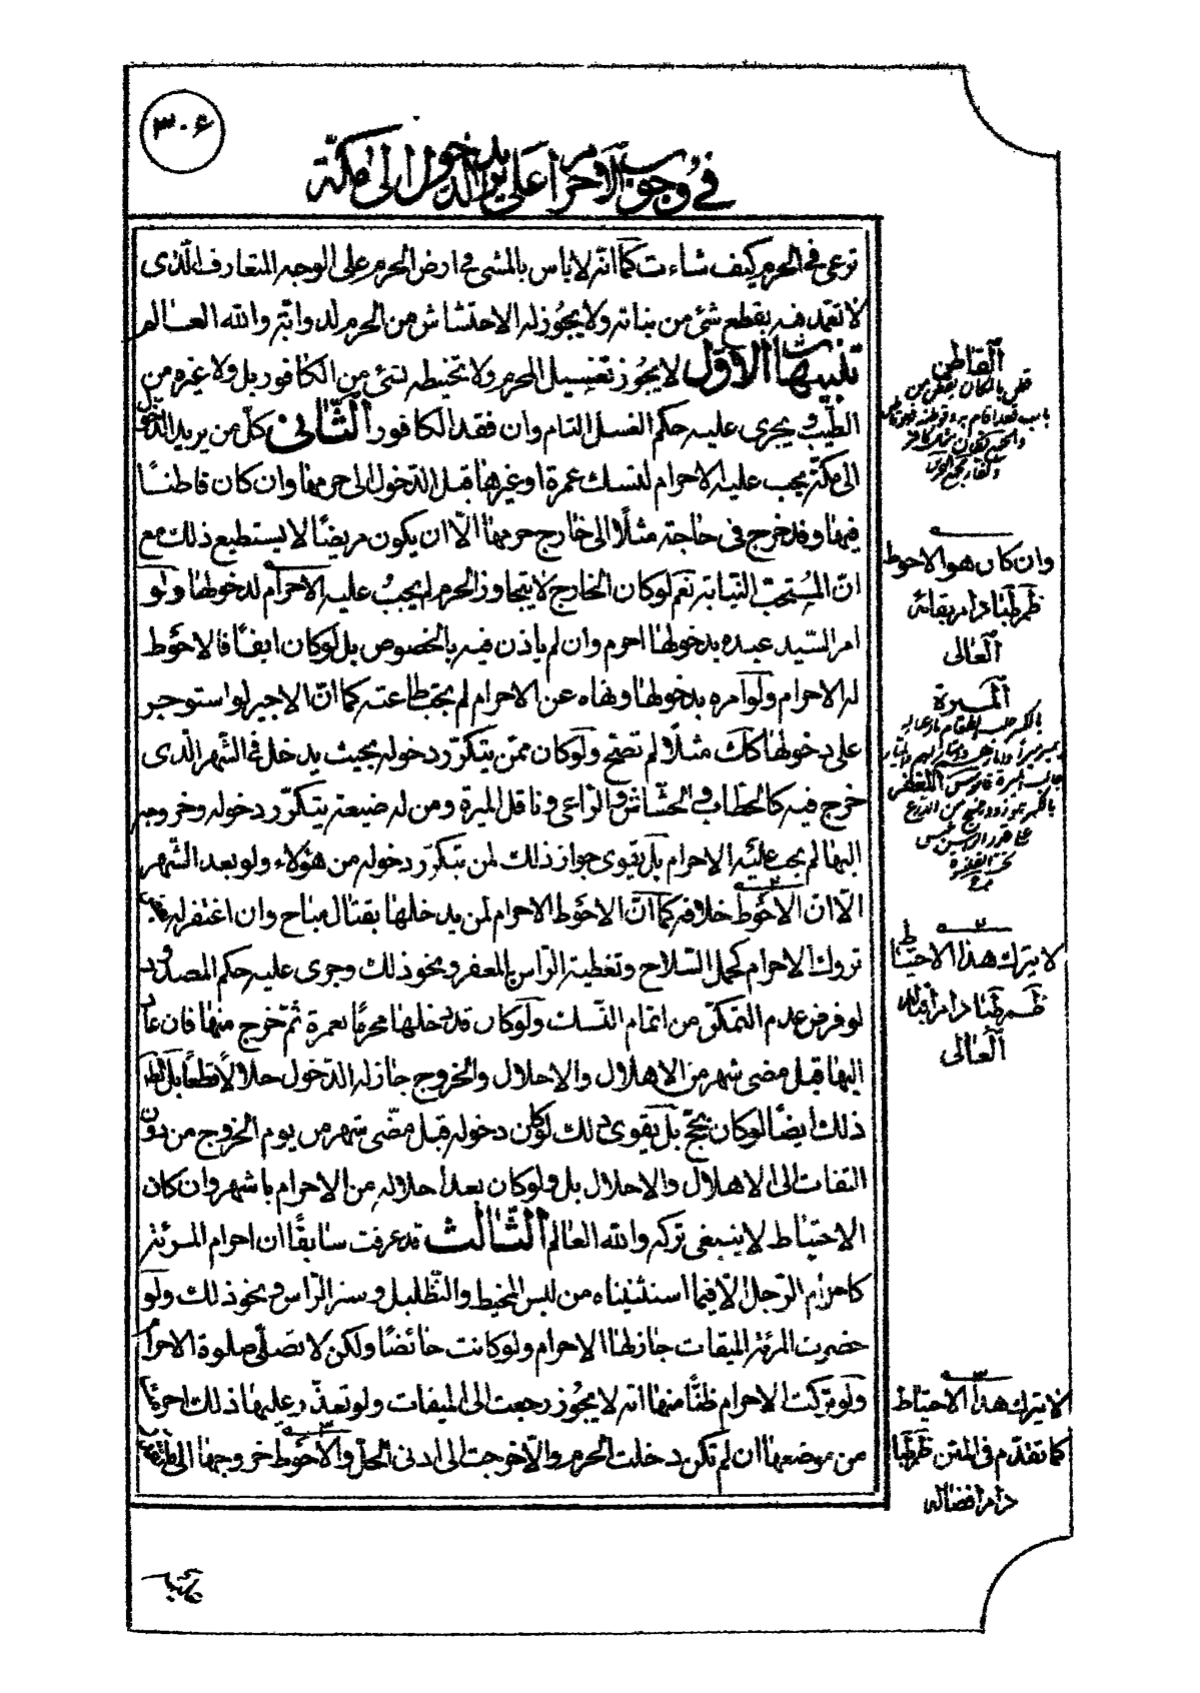 ٣٠۶
في وجوب الاحرام على من يريد الدخول الى مكّة
ترعى في الحرم كيف شاءت كما انّه لا باس بالمشى في ارض الحرم على الوجه المتعارف الّذى
لا تعمد فيه بقطع شئ من نباته ولا يجوز له الاحتشاش من الحرم لدوابّه والله العالم
تنبيهات الاوّل لا يجوز تغسيل المحرم ولا تحنيطه بشئ من الكافور بل ولا غيره من
الطّيب ويجرى عليه حكم الغسل التام وان فقد الكافور الثّانى كلّ من يريد الدّخول
الى مكّة يجب عليه الاحرام لنسك عمرة او غيرها قبل الدّخول الى حرمها وان كان قاطنًا
فيها وقد خرج فى حاجة مثلًا الى خارج حرمها الّا ان يكون مريضًا لا يستطيع ذلك مع
انّ المستحبّ النّيابة نعم لو كان الخارج لا يتجاوز الحرم لم يجب عليه الاحرام لدخولها ولو
امر السّيد عبده بدخولها احرم وان لم ياذن فيه بالخصوص بل لو كان ابقًا فالاحوط
له الاحرام ولو امره بدخولها ونهاه عن الاحرام لم يجب طاعته كما انّ الاجير لو استوجر
على دخولها كك مثلًا لم تصحّ ولو كان ممّن يتكرّر دخوله بحيث يدخل في الشّهر الّذى
خرج فيه كالحطّاب والحشّاش والرّاعى وناقل الميرة ومن له ضيعة يتكرّر دخوله وخروجه
اليها لم يجب عليه الاحرام بل يقوى جواز ذلك لمن يتكرّر دخوله من هؤلاء ولو بعد الشّهر
الّا انّ الاحوط خلافه كما انّ الاحوط الاحرام لمن يدخلها بقتال مباح وان اغتفر له
تروك الاحرام كحمل السّلاح وتغطية الرّاس بالمغفر ونحو ذلك وجرى عليه حكم المصدود
لو فرض عدم التمكّن من اتمام النّسك ولو كان قد دخلها محرمًا بعمرة ثمّ خرج منها فان عاد
اليها قبل مضى شهر من الاهلال والاحلال والخروج جاز له الدّخول حلالًا قطعًا بل
ذلك ايضًا لو كان بحجّ بل يقوى ذلك لو كان دخوله قبل مضّى شهر من يوم الخروج من دون
التفات الى الاهلال والاحلال بل ولو كان بعد احلاله من الاحرام باشهر وان كان
الاحتياط لا ينبغى تركه والله العالم الثّالث قد عرفت سابقًا ان احرام المرئة
كاحرام الرّجل الّا فيما استثنيناه من لبس المخيط والتّظليل وستر الرّاس ونحو ذلك ولو
حضرت المرئة الميقات جاز لها الاحرام ولو كانت حائضًا ولكن لا تصلّى صلوة الاحرام
ولو تركت الاحرام ظنًّا منها انه لا يجوز رجعت الى الميقات ولو تعذّر عليها ذلك احرمت
من موضعها ان لم تكن دخلت الحرم والّا خرجت الى ادنى الحلّ والاحوط خروجها الى
القاطن
وان كان هو الاحوط
ظم طبا دام بقائه
العالى
الميرة
لا يترك هذا الاحتياط
ظم طبا دام
العالى
لا يترك هذا الاحتياط
كما تقدّم في المتن ظم طبا
دام افضاله